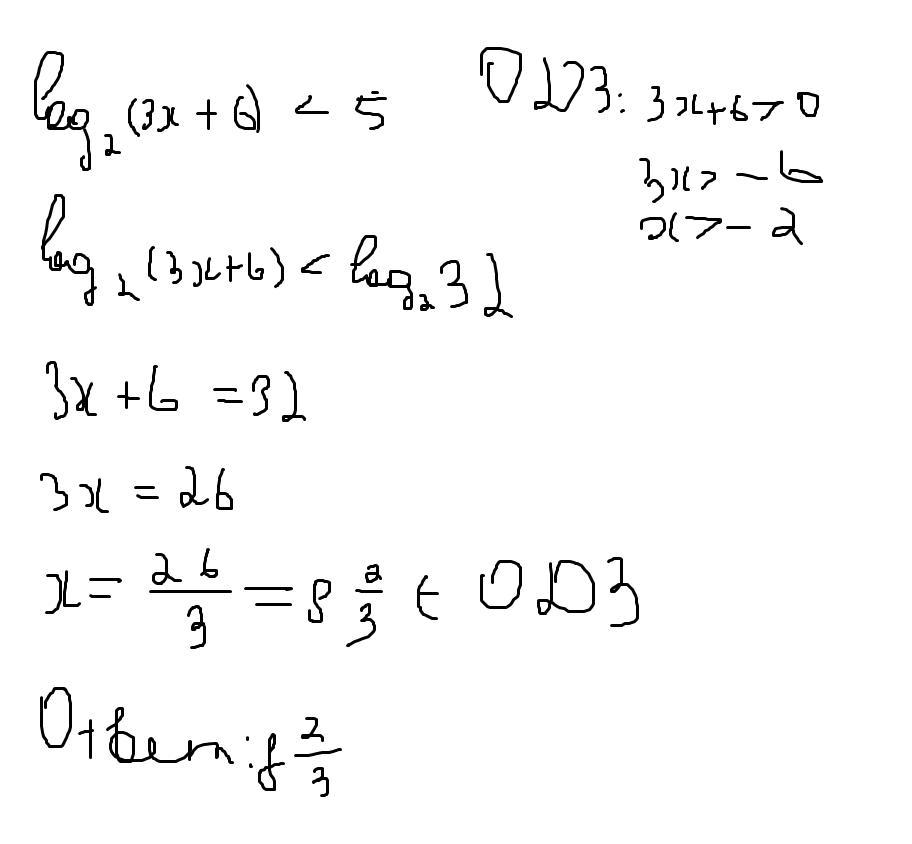 log₂(3x + 6) < 5
ОДЗ: 3x+6>0
3x> -6
x> -2
log₂(3x+6) < log₂32
3x + 6 = 32
3x = 26
x = 26/3 = 8 2/3 ∈ ОДЗ
Ответ: 8 2/3